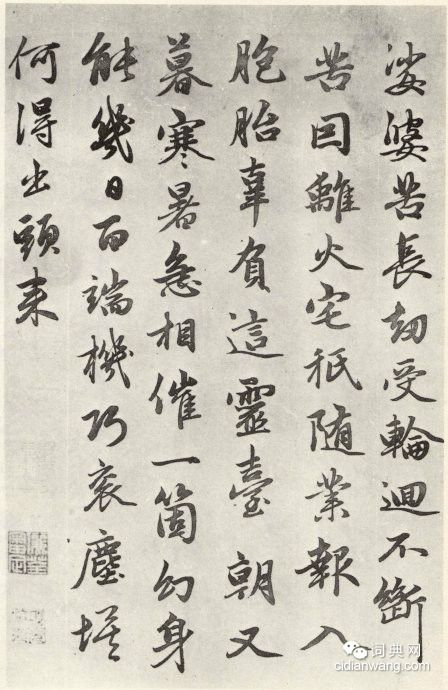 娑婆苦長劫受輪迴不斷
苦因離火宅秖随業報入
胞胎辜負這靈臺朝又
暮寒暑急相催一箇幻身
能幾日百端機巧衮塵埃
何得出頭来
词典网
cidianwang.com